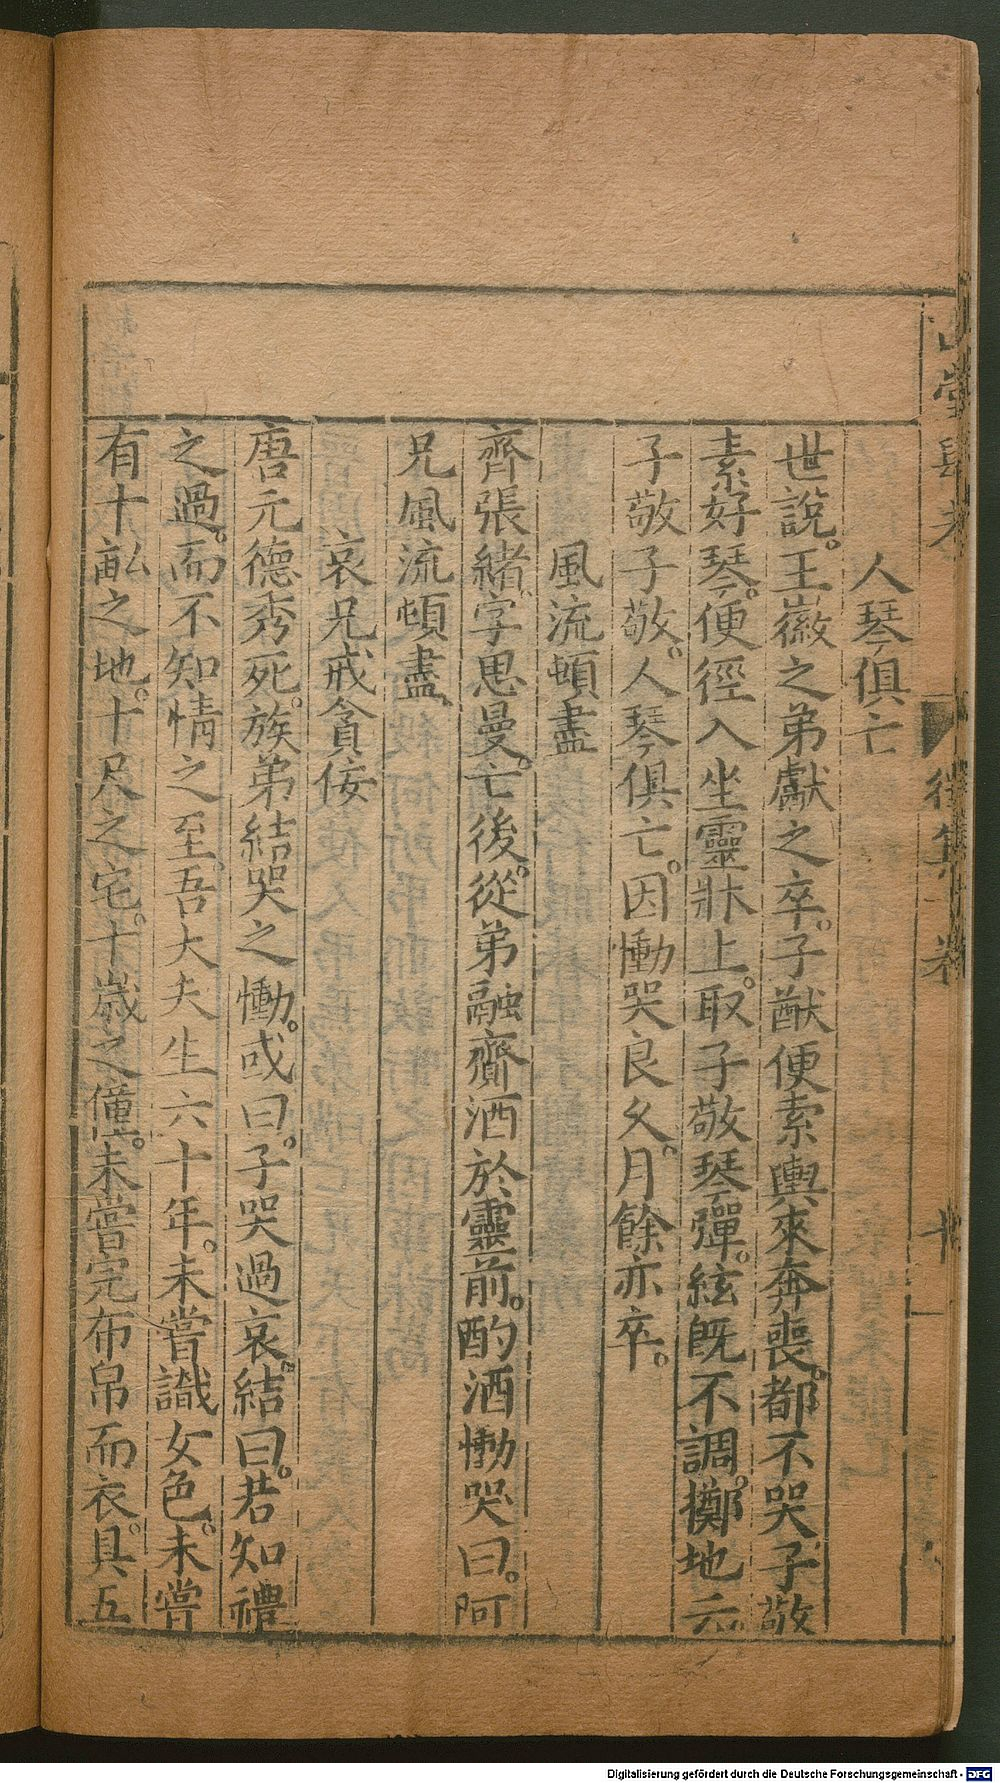 人琴俱亡
世說。王徽之弟獻之卒。子猷便索輿來奔喪。都不哭子敬
素好琴。便徑入坐靈牀上。取子敬琴彈。絃既不調。擲地云
子敬子敬。人琴俱亡。因慟哭良久。月餘亦卒。
風流頓盡
齊張緒。字思曼。亡後。從弟融齎酒於靈前。酌酒慟哭曰。阿
兄風流頓盡
哀兄戒貪侫
唐元德秀死。族弟結哭之慟。或曰。子哭過哀。結曰。若知禮
之過。而不知情之至。吾大夫生六十年。未嘗識女色。未嘗
有十畝之地。十尺之宅。十歲之僮。未嘗完布帛而衣。具五
Digitalisierung gefördert durch die Deutsche Forschungsgemeinschaft - DFG